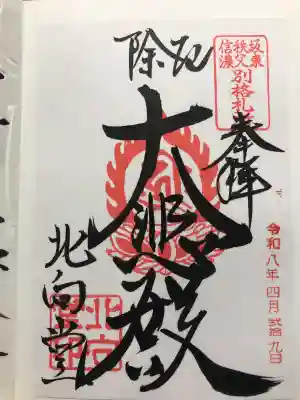 坂東
秩父
信濃
別格札所
奉拝
令和八年四月弐拾九日
厄除
大悲殿
北向堂
北向